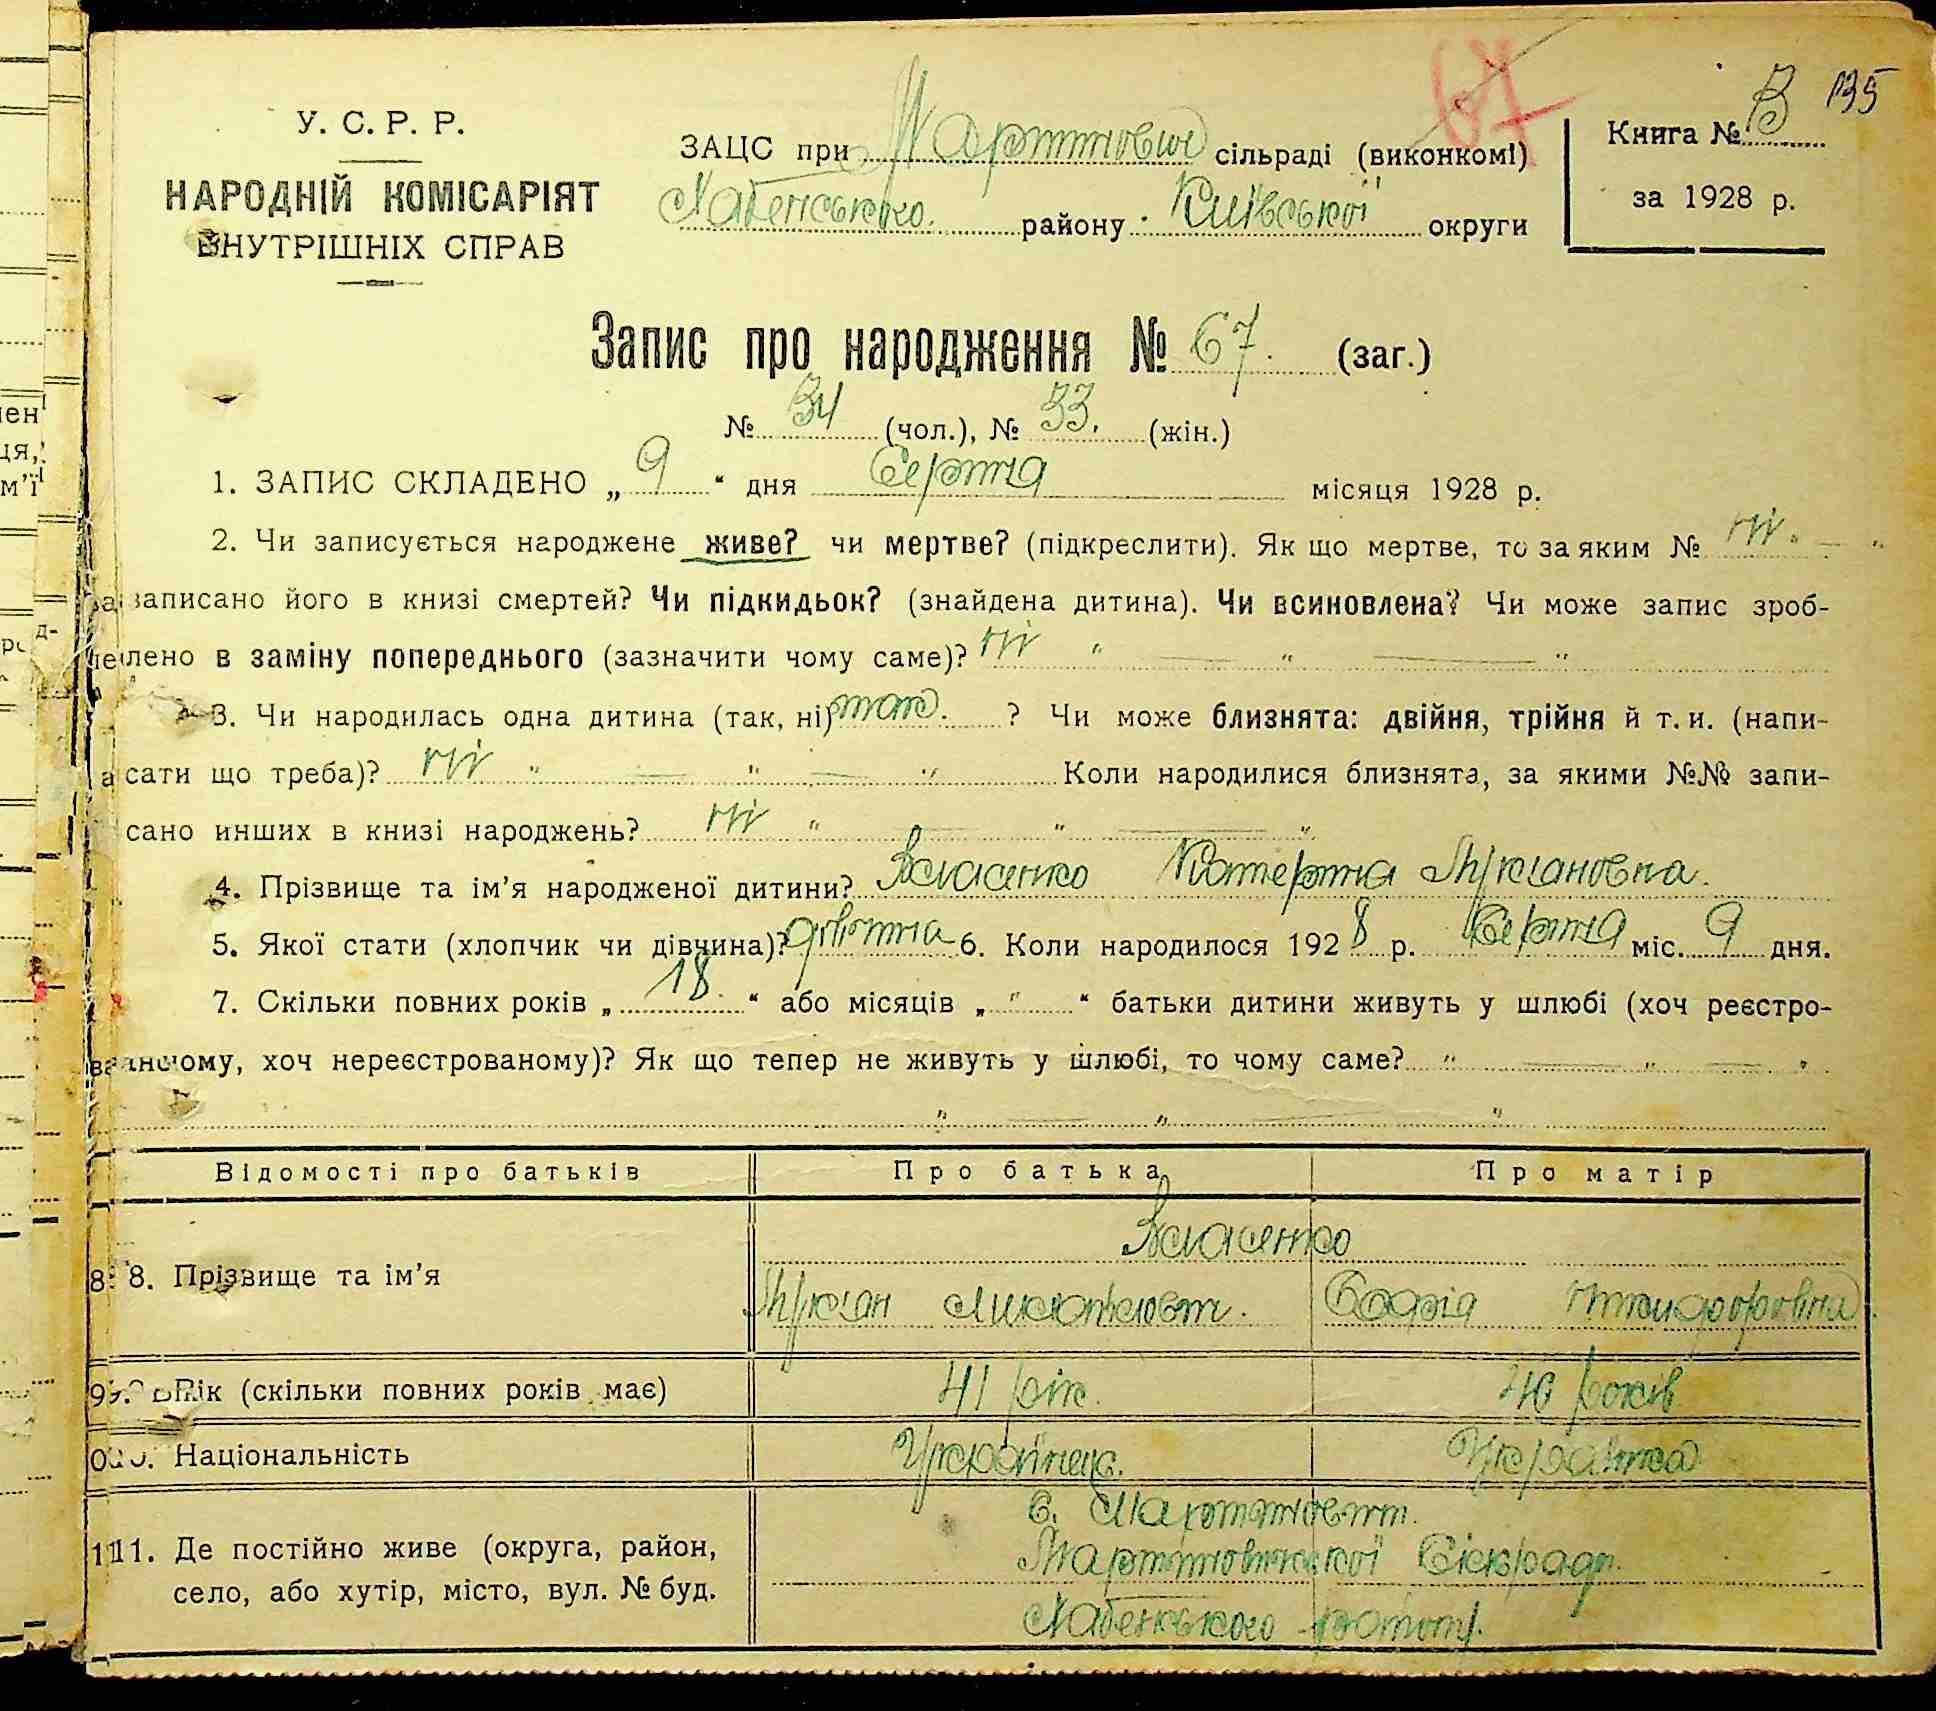 67
135
У. С. Р. Р.
НАРОДНІЙ КОМІСАРІЯТ
ВНУТРІШНІХ СПРАВ
ЗАЦС при Мартинович сільраді (виконкомі)
Хабенського району Київської округи
Книга № В
за 1928 р.
Запис про народження № 67. (заг.)
№ 34 (чол.), № 33. (жін.)
1. ЗАПИС СКЛАДЕНО „ 9 “ дня Серпня місяця 1928 р.
2. Чи записується народжене живе? чи мертве? (підкреслити). Як що мертве, то за яким № ні
записано його в книзі смертей? Чи підкидьок? (знайдена дитина). Чи всиновлена? Чи може запис зроб-
лено в заміну попереднього (зазначити чому саме)? ні " — " — "
3. Чи народилась одна дитина (так, ні) так. ? Чи може близнята: двійня, трійня й т. и. (напи-
сати що треба)? ні " — " — " Коли народилися близнята, за якими №№ запи-
сано инших в книзі народжень? ні " — " — "
4. Прізвище та ім’я народженої дитини? Власенко Катерина Лукіановна.
5. Якої стати (хлопчик чи дівчина)? дівчина 6. Коли народилося 1928 р. Серпня міс. 9 дня.
7. Скільки повних років „ 18 “ або місяців „ " “ батьки дитини живуть у шлюбі (хоч реєстро-
ваному, хоч нереєстрованому)? Як що тепер не живуть у шлюбі, то чому саме? " — " — "
" — " — "
Відомості про батьків Про батька Про матір
Власенко
8. Прізвище та ім’я
Лукіан Софія
9. Вік (скільки повних років має) 41 рік. 40 років
Національність Українець. Українка
с. Мартинович.
11. Де постійно живе (округа, район, Мартиновичської Сільради.
село, або хутір, місто, вул. № буд.
Хабенського району.